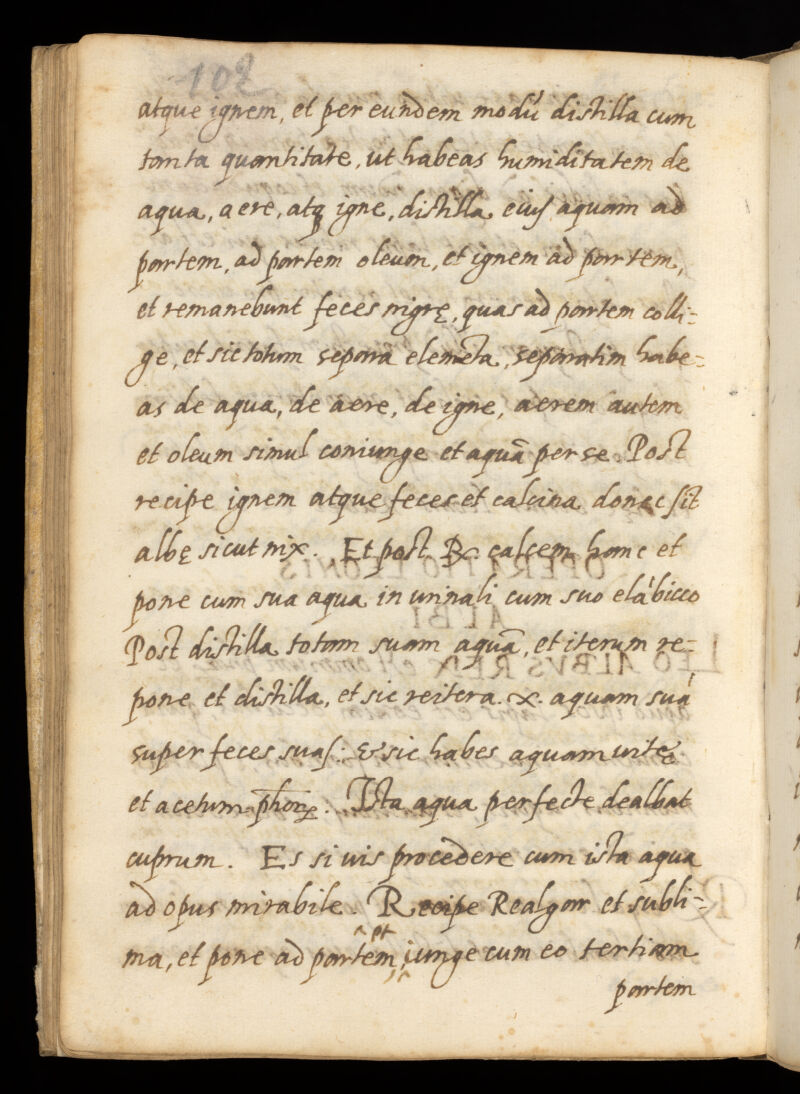 102
atque ignem, et per eundem modú distilla cum
tanta quantitate, ut habeas humiditatem de
aqua, aere, atq igne, distilla eius aquam ad
partem, ad partem oleum, et ignem ad partem,
et remanebunt feces nigrę, quas ad partem colli=
ge, et sic totum separa elemēta, separatim habe=
as de aqua, de aere, de igne, aerem autem
et oleum simul coniunge et aquā per se. Post
recipe ignem atque feces et calcina donec sit
albę sicut nix. Et post ℞ calcem hanc et
pone cum sua aqua in urinali cum suo elábicco
Post distilla totam suam aquā, et iterum re=
pone et distilla, et sic reitera .x. aquam suá
super feces suas: & sic habes aquam uitę
et acetum phorꝝ. Ista aqua perfecte dealbat
cuprum. Es si uis procedere cum ista aqua
ad opus mirabile. Recipe Realgar et subli=
ma, et pone ad partem, iunge cum eo tertiam
partem